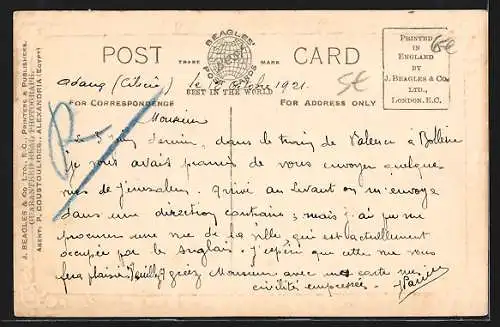 POST CARD
TRADE MARK
BEAGLES' POST CARDS
BEST IN THE WORLD
PRINTED
IN
ENGLAND
BY
J. BEAGLES & CO.
LTD.,
LONDON, E.C.
65€
5€
Adana (Cilicie) le octobre 1921.
FOR CORRESPONDENCE
FOR ADDRESS ONLY
Monsieur
dernier, dans le train de Valence à Bollène
je vous avais promis de vous envoyer quelques
vues de Jérusalem. Arrivé au Levant on m'envoya
dans une direction contraire; mais j'ai pu me
procurer une vue de la ville qui est actuellement
occupée par les Anglais. J'espère que cette vue vous
fera plaisir. Veuillez agréez Monsieur avec ma carte mes
civilités empressées.
J. BEAGLES & CO., LTD., LONDON, E.C., PRINTERS & PUBLISHERS.
GUARANTEED REAL PHOTOGRAPH.
AGENT: P. COUSTOULIDES, ALEXANDRIA (EGYPT)